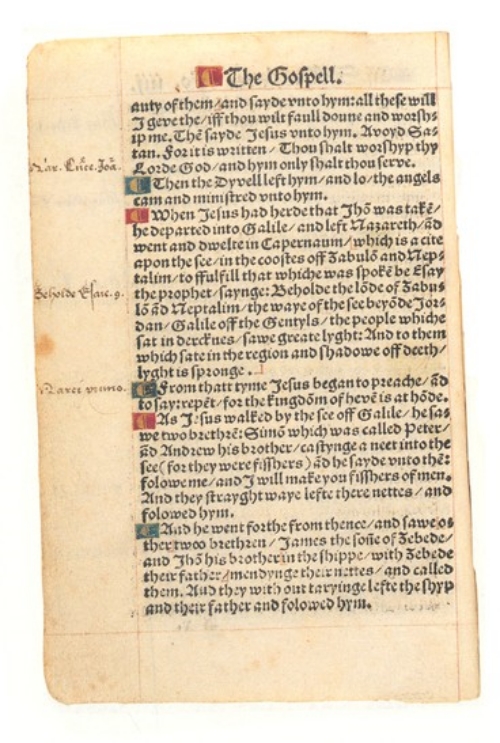 The Gospell.
auty of them/and sayde vnto hym: all these will
I geve the/iff thou wilt faull doune and worsh⸗
ip me. Thē sayde Jesus vnto hym. Avoyd Sa⸗
tan. For it is written/ Thou shalt worshyp thy
Lorde God/and hym only shalt thou serve.
Then the Dyvell left hym/and lo/the angels
cam and ministred vnto hym.
When Jesus had herde that Jhō was takē/
he departed into Galile/ and left Nazareth/ād
went and dwelte in Capernaum/ which is a cite
apon the see/in the coostes off Zabulō and Nep⸗
talim/to ffulfill that whiche was spokē be Esay
the prophet/saynge: Beholde the lōde of Zabu⸗
lō ād Neptalim/the waye of the see beyōde Jor⸗
dan/Galile off the Gentyls/the people whiche
sat in dercknes/sawe greate lyght: And to them
which sate in the region and shadowe off deeth/
lyght is spronge.
From thatt tyme Jesus began to preache/ād
to say: repēt/for the kingdōm of hevē is at hōde.
As Jesus walked by the see off Galile/he sa⸗
we two brethrē: Simō which was called Peter/
ād Andrew his brother/castynge a neet into the
see(for they were fisshers) ād he sayde vnto thē:
folowe me/and I will make you fisshers of men.
And they strayght waye lefte there nettes/and
folowed hym.
And he went forthe from thence/and sawe o⸗
ther twoo brethren/ James the sonē of Zebede/
and Jhō his brother in the shippe/with Zebede
their father/mendynge their nettes/and called
them. And they with out taryinge lefte the shyp
and their father and folowed hym.
Beholde Esaie. 9.